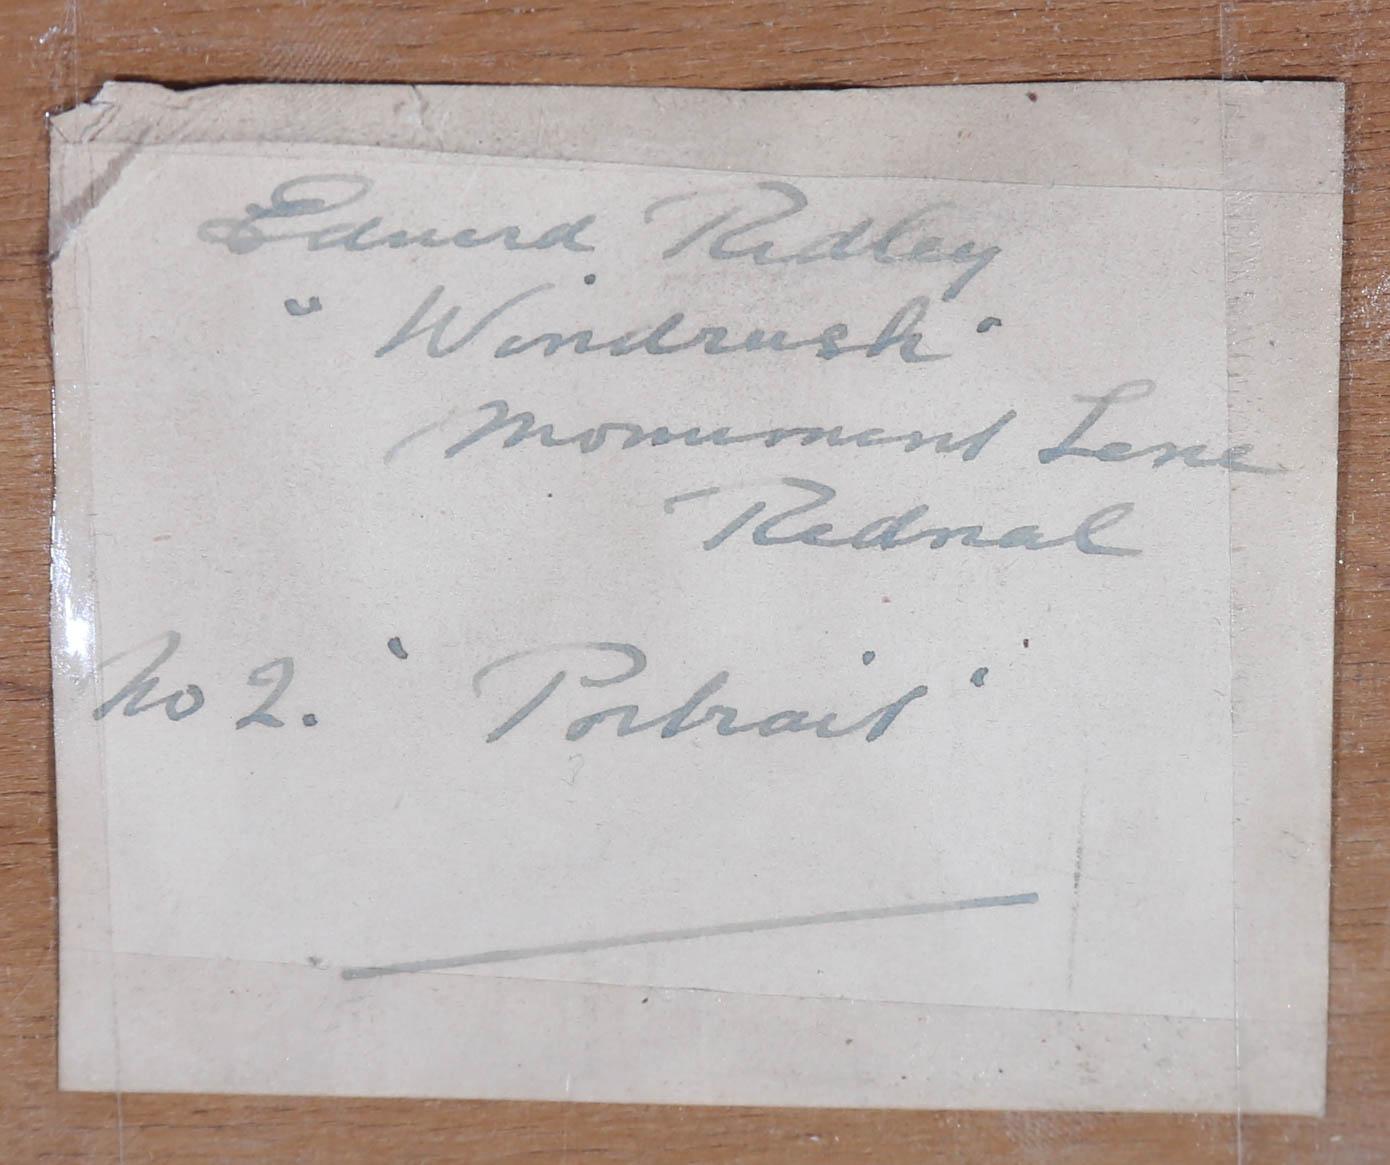 Edward Ridley
"Windrush"
Monument Lane
Rednal
No 2. "Portrait"